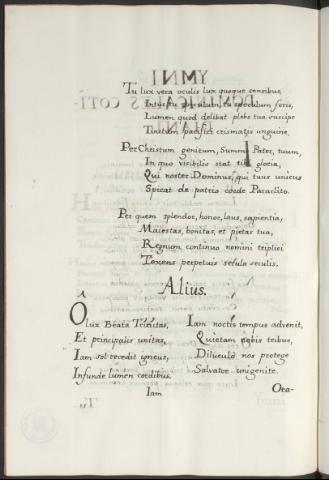 Tu lux vera oculis lux quoque sensibus,
Intus tu speculum, tu speculum foris,
Lumen quod delibat plebs tua suscipe
Tinctum pacifici crismatis unguine.
Per Christum genitum, Summe Pater, tuum,
In quo visibilis stat tibi gloria,
Qui noster Dominus, qui tuus unicus
Spirat de patrio corde Paraclito.
Per quem splendor, honor, laus, sapientia,
Maiestas, bonitas, et pietas tua,
Regnum continuo nomini triplici
Texens perpetuis secula seculis.
Alius.
O lux Beata Trinitas,
Et principalis unitas,
Iam sol recedit igneus,
Infunde lumen cordibus.
Iam
Iam noctis tempus advenit,
Quietam nobis tribue,
Diluculo nos protege
Salvator unigenite.
Ora-